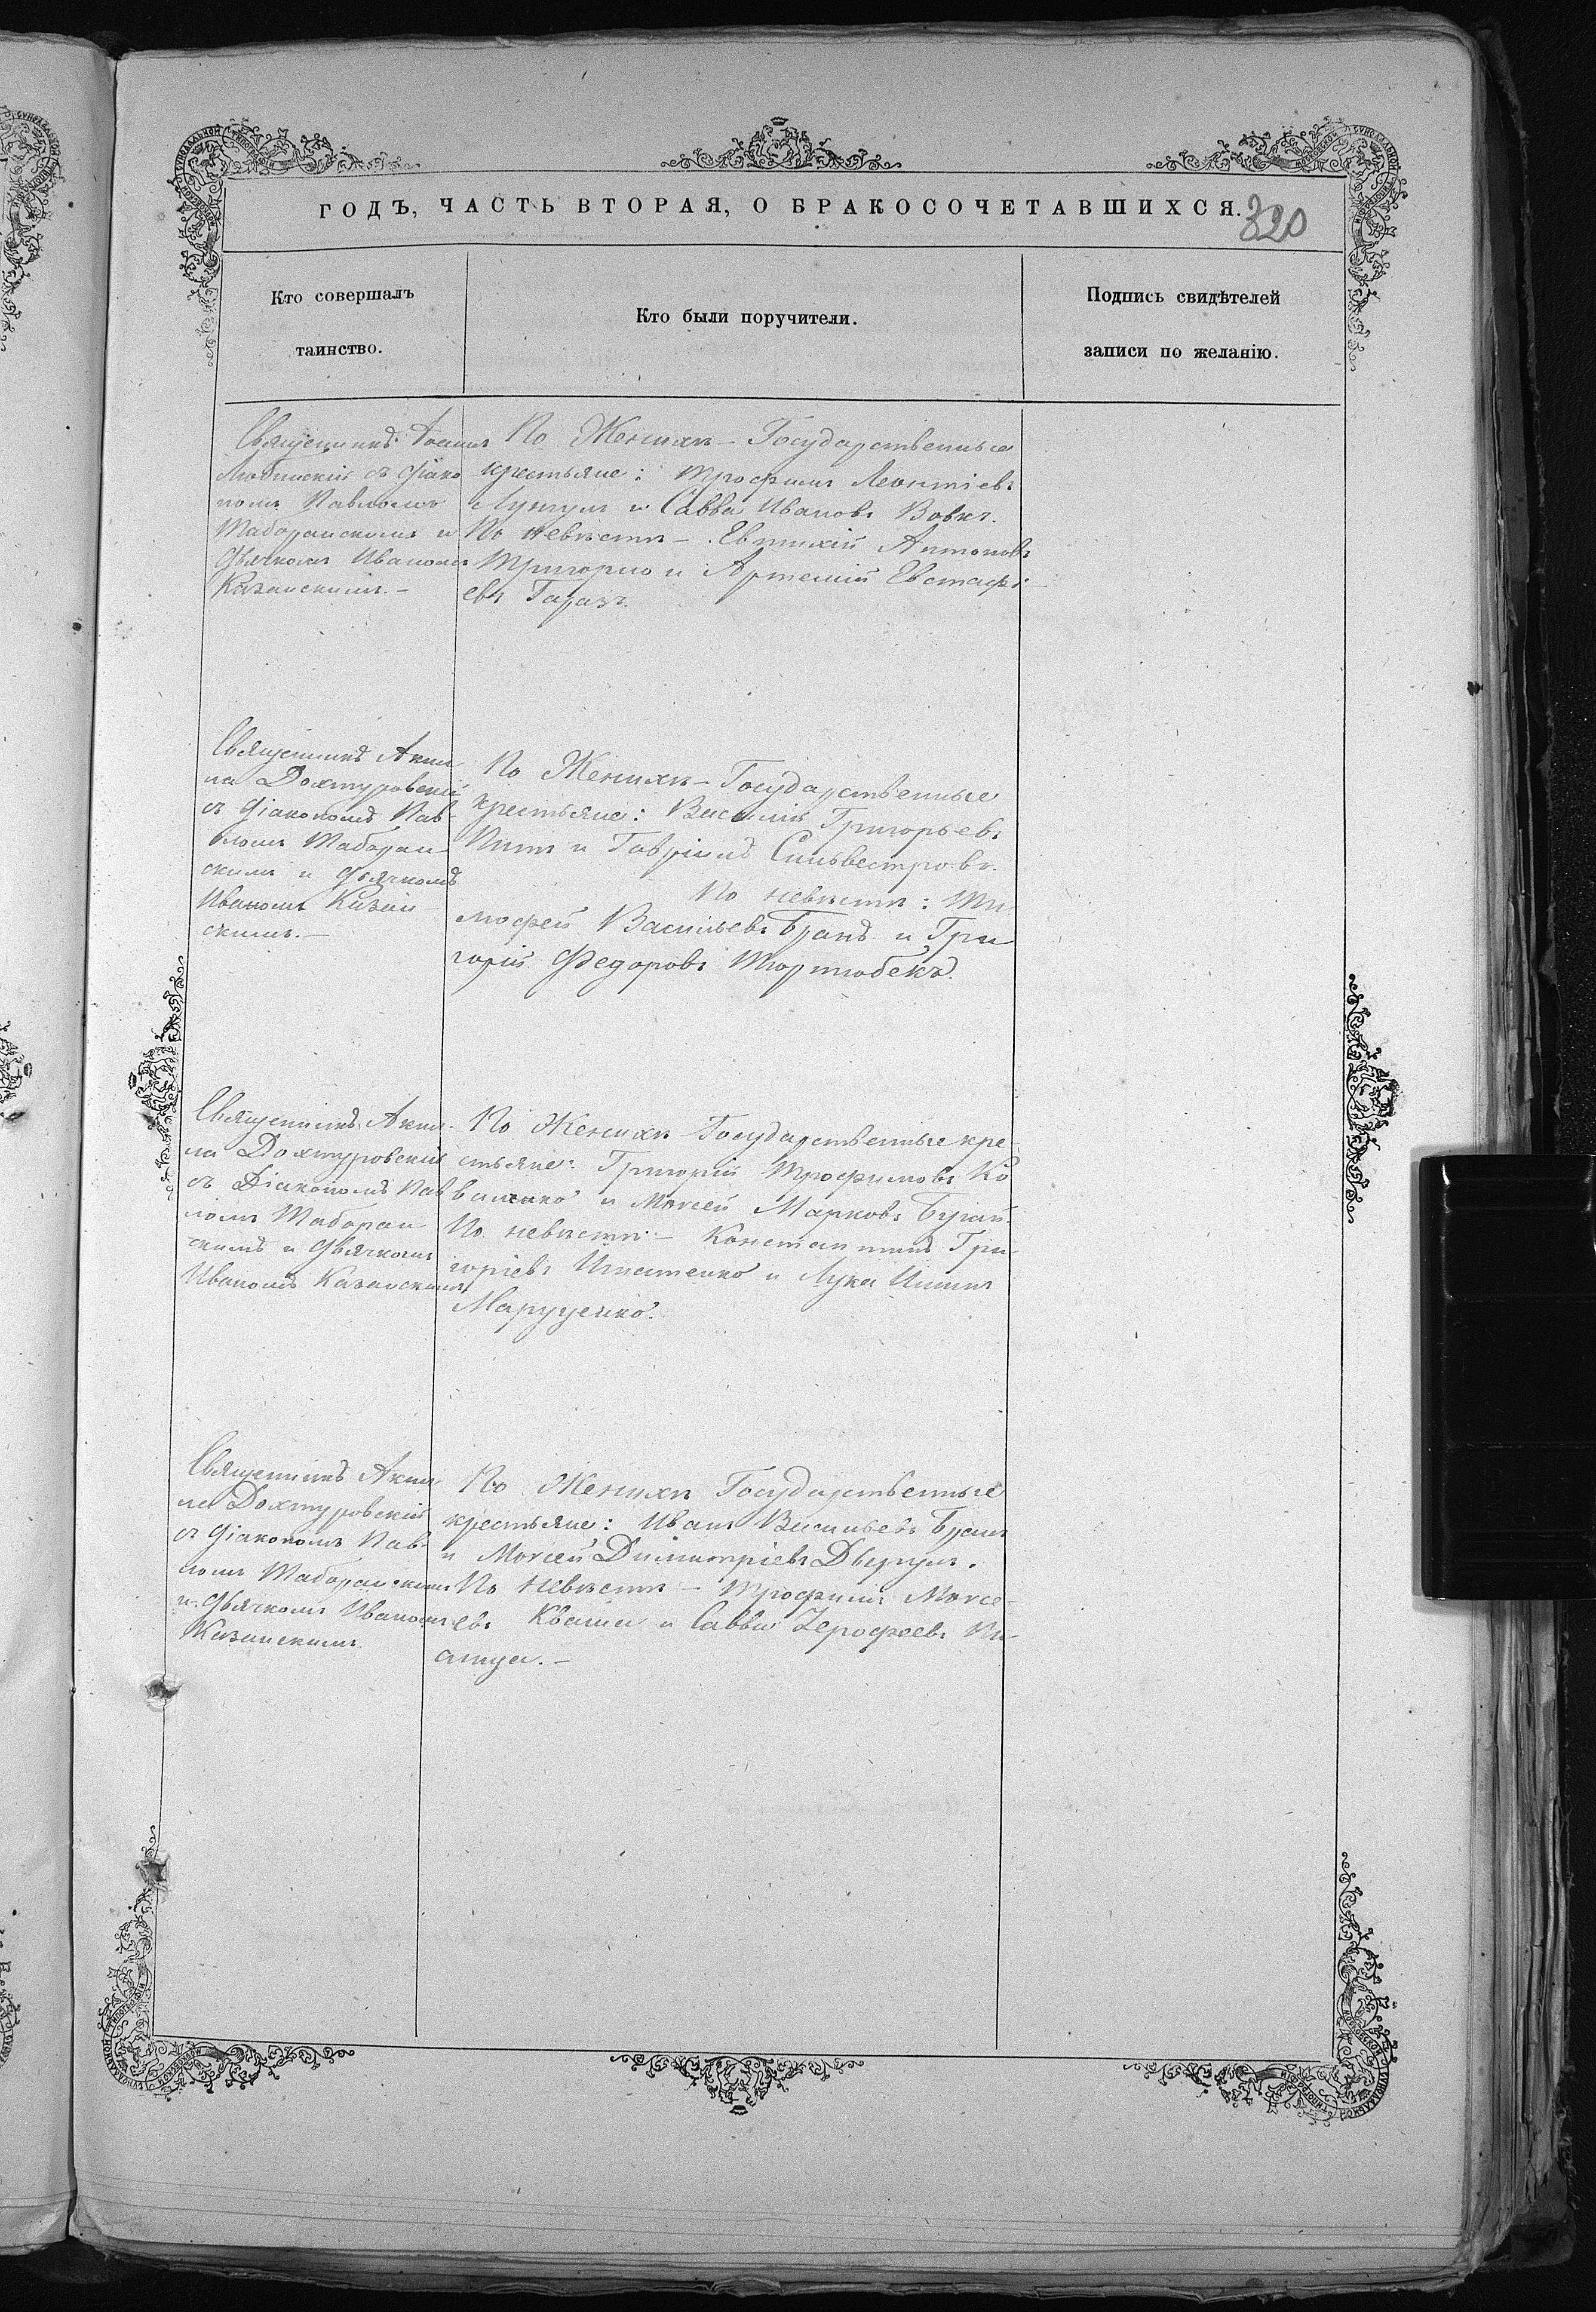 ГОДЪ, ЧАСТЬ ВТОРАЯ, О БРАКОСОЧЕТАВШИХСЯ.
320
Кто совершалъ
таинство.
Кто были поручители.
Подпись свидѣтелей
записи по желанію.
Священникъ Іоаннъ
Любинскій съ діако
номъ Павломъ
Таборанскимъ и
дьячкомъ Иваномъ
Казанскимъ.-
По Женихѣ - Государственные
крестьяне: Трофимъ Леонтіевъ
и Савва Ивановъ Вовкъ.
По невѣстѣ - Евтихій Антоновъ
Григорио и Артемій Евстафі
евъ Гаразъ.
Священникъ Аки
ла Дохтуровскій
съ діакономъ Пав-
ломъ Таборан
скимъ и дьячкомъ
Иваномъ Казан
скимъ.-
По Женихѣ - Государственные
крестьяне: Василій Григорьевъ
и Гавріилъ Сильвестровъ.
По невѣстѣ: Ти
мофей Васильевъ Бранъ и Гри
горій Федоровъ
Священникъ Аки-
ла Дохтуровскій
съ Діакономъ Пав
ломъ Таборан
скимъ и дьячкомъ
Иваномъ Казанскимъ
По Женихѣ Государственные кре
стьяне: Григорій Трофимовъ Ко
валенко и Моисей Марковъ Бугай.
По невѣстѣ - Константинъ Гри
горіевъ Игнатенко и Лука
Марущенко.
Священникъ Аки
ла Дохтуровскій
съ діакономъ Пав-
ломъ Таборанскимъ
и дьячкомъ Иваномъ
Казанскимъ
По Женихѣ Государственные
крестьяне: Иванъ Васильевъ Бранъ
и Моисей Димитріевъ
По невѣстѣ - Трофимъ Моисе-
евъ Кваша и Савва Ерофеевъ